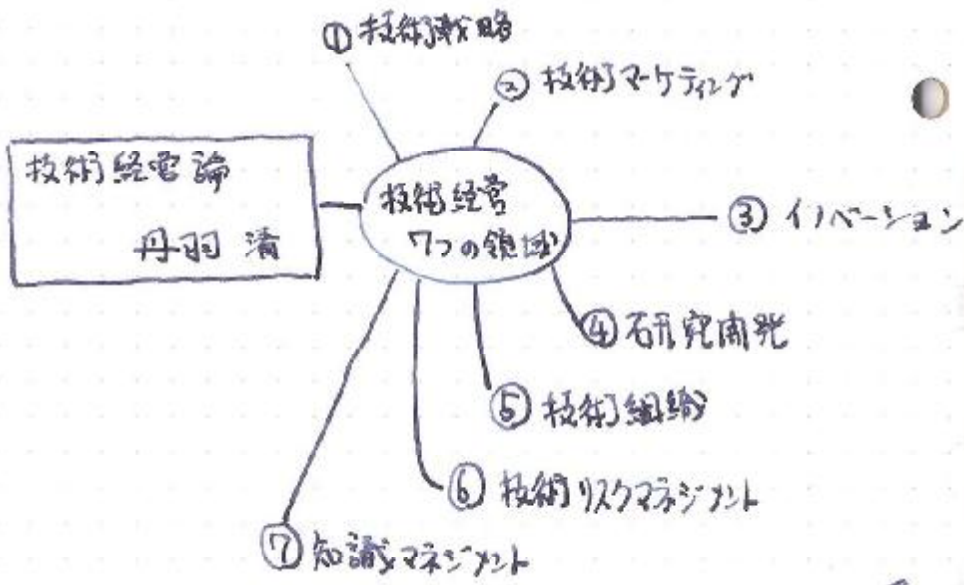 技術経営論
丹羽 清
技術経営
7つの領域
① 技術戦略
② 技術マーケティング
③ イノベーション
④ 研究開発
⑤ 技術組織
⑥ 技術リスクマネジメント
⑦ 知識マネジメント